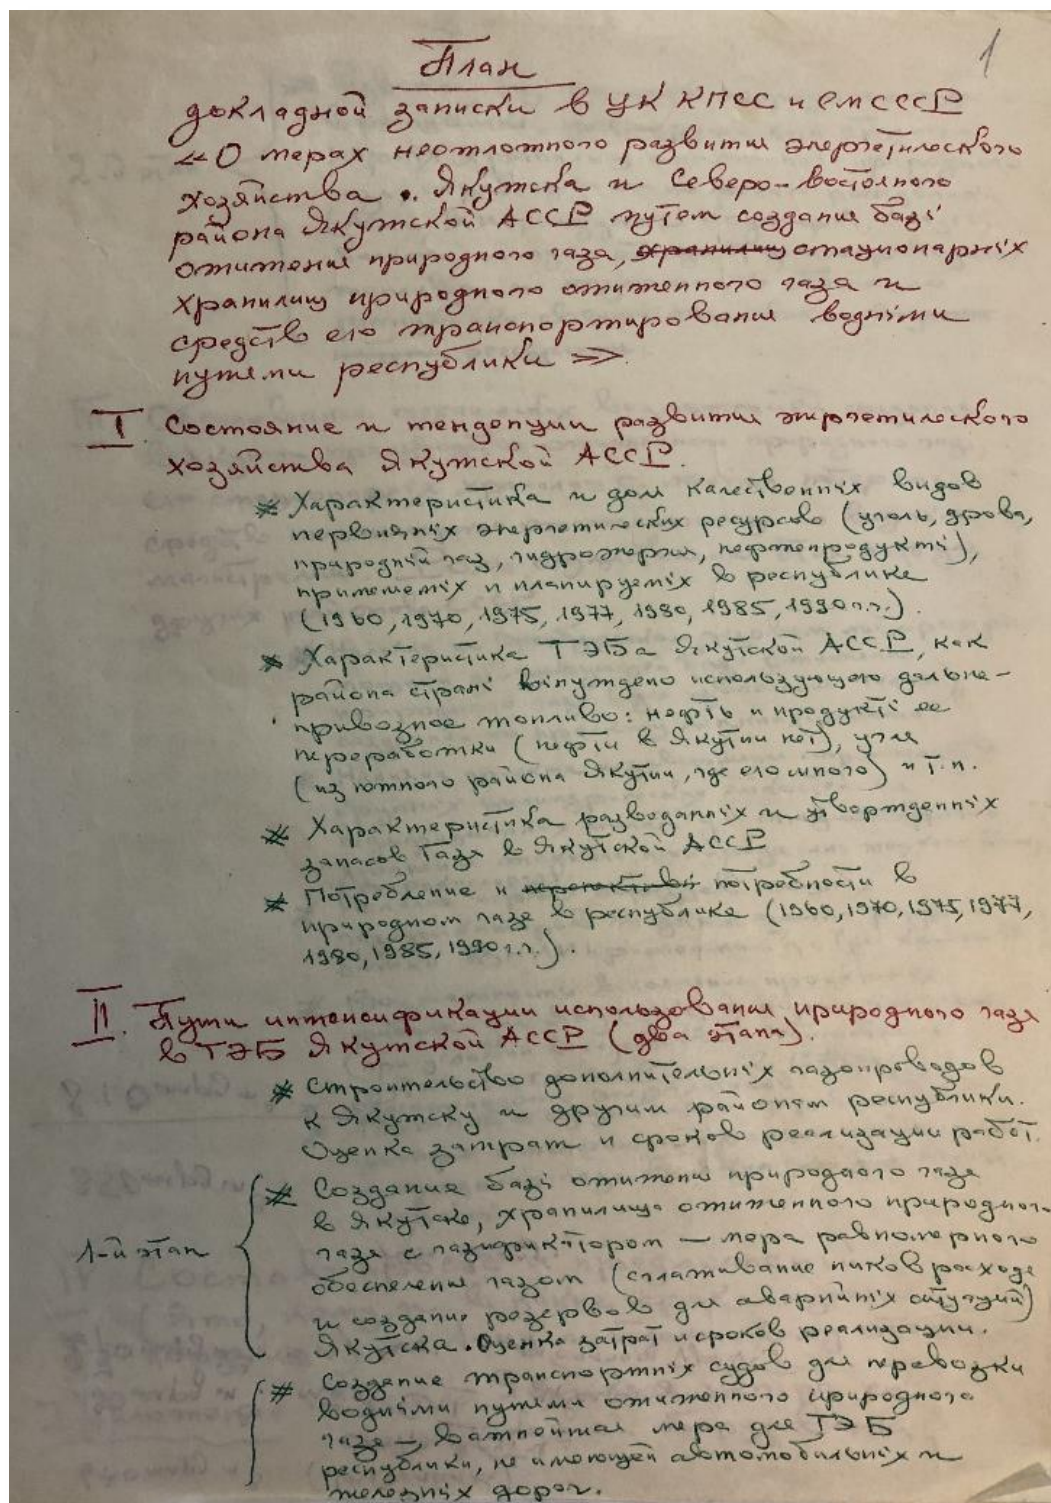 1
План
докладной записки в ЦК КПСС и СМ СССР
«О мерах неотложного развития энергетического
хозяйства г. Якутска и Северо-Восточного
района Якутской АССР путем создания базы
сжижения природного газа, хранилищ стационарных
хранилищ природного сжиженного газа и
средств его транспортирования водными
путями республики».
I. Состояние и тенденции развития энергетического
хозяйства Якутской АССР.
* Характеристика и доля качественных видов
первичных энергетических ресурсов (уголь, дрова,
природный газ, гидроэнергия, нефтепродукты),
применяемых и планируемых в республике
(1960, 1970, 1975, 1977, 1980, 1985, 1990 г.г.).
* Характеристика ТЭБа Якутской АССР, как
района страны вынуждено использующего дальне-
привозное топливо: нефть и продукты ее
переработки (нефти в Якутии нет), угля
(из южного района Якутии, где его много) и т.п.
* Характеристика разведанных и утвержденных
запасов газа в Якутской АССР
* Потребление и перспективы потребности в
природном газе в республике (1960, 1970, 1975, 1977,
1980, 1985, 1990 г.г.).
II. Пути интенсификации использования природного газа
в ТЭБ Якутской АССР (два этапа).
* Строительство дополнительных газопроводов
к Якутску и другим районам республики.
Оценка затрат и сроков реализации работ.
* Создание базы сжижения природного газа
в Якутске, хранилища сжиженного природного
1-й этап
газа с газификатором — мера равномерного
обеспечения газом (сглаживание пиков расхода
и создание резервов для аварийных ситуаций)
Якутска. Оценка затрат и сроков реализации.
* Создание транспортных судов для перевозки
водными путями сжиженного природного
газа — важнейшая мера для ТЭБ
республики, не имеющей автомобильных и
железных дорог.